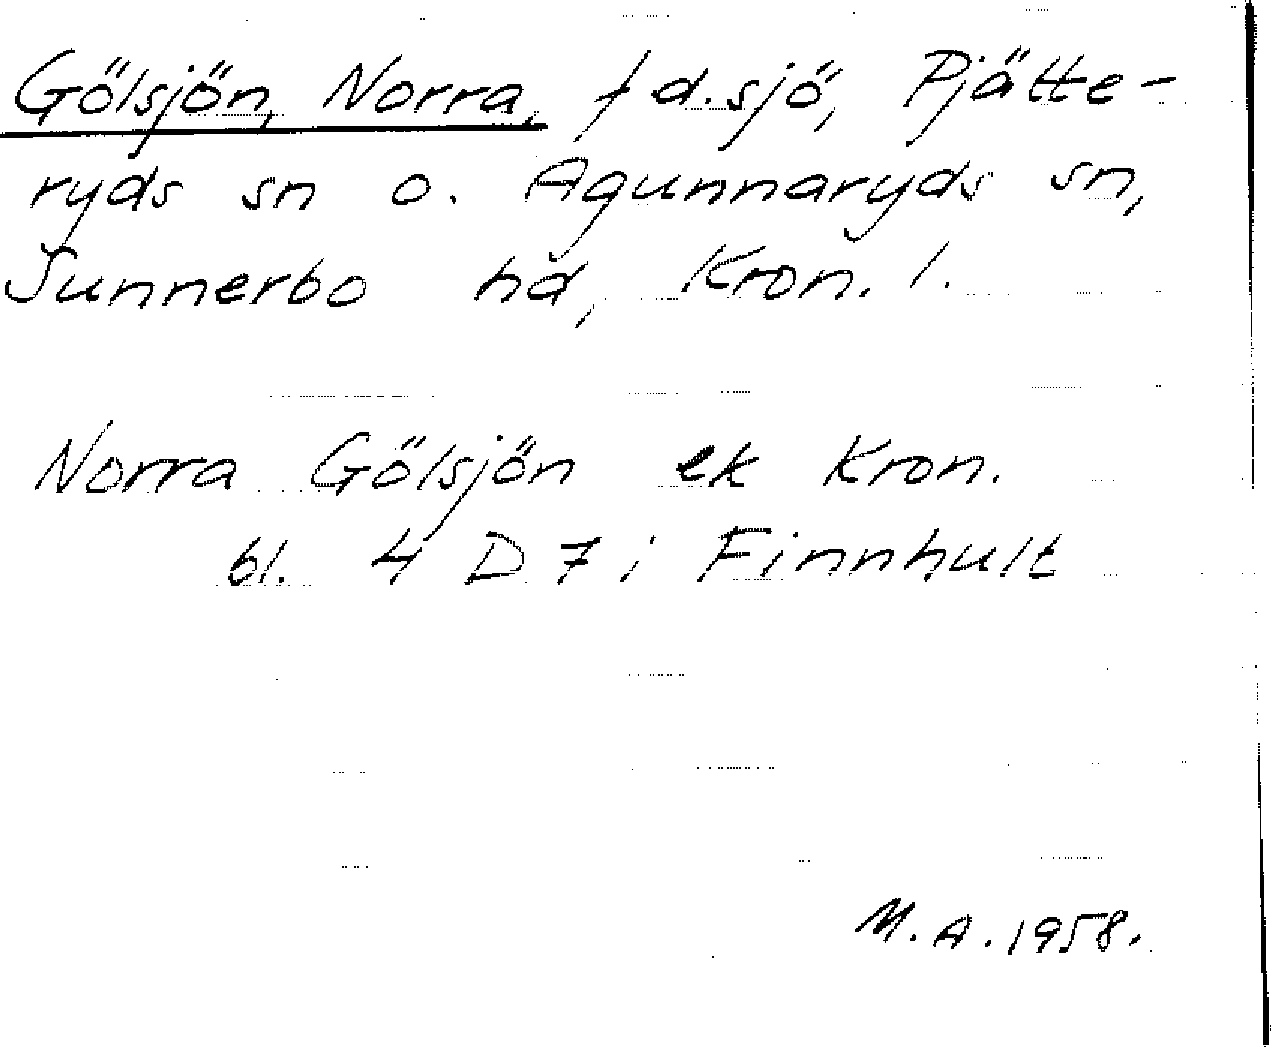 Gölsjön, Norra, f d. sjö, Pjätte-
ryds sn o. Agunnaryds sn,
Sunnerbo hd, Kron. l.
Norra Gölsjön ek Kron.
bl. 4 D 7 i Finnhult
M.A. 1958.